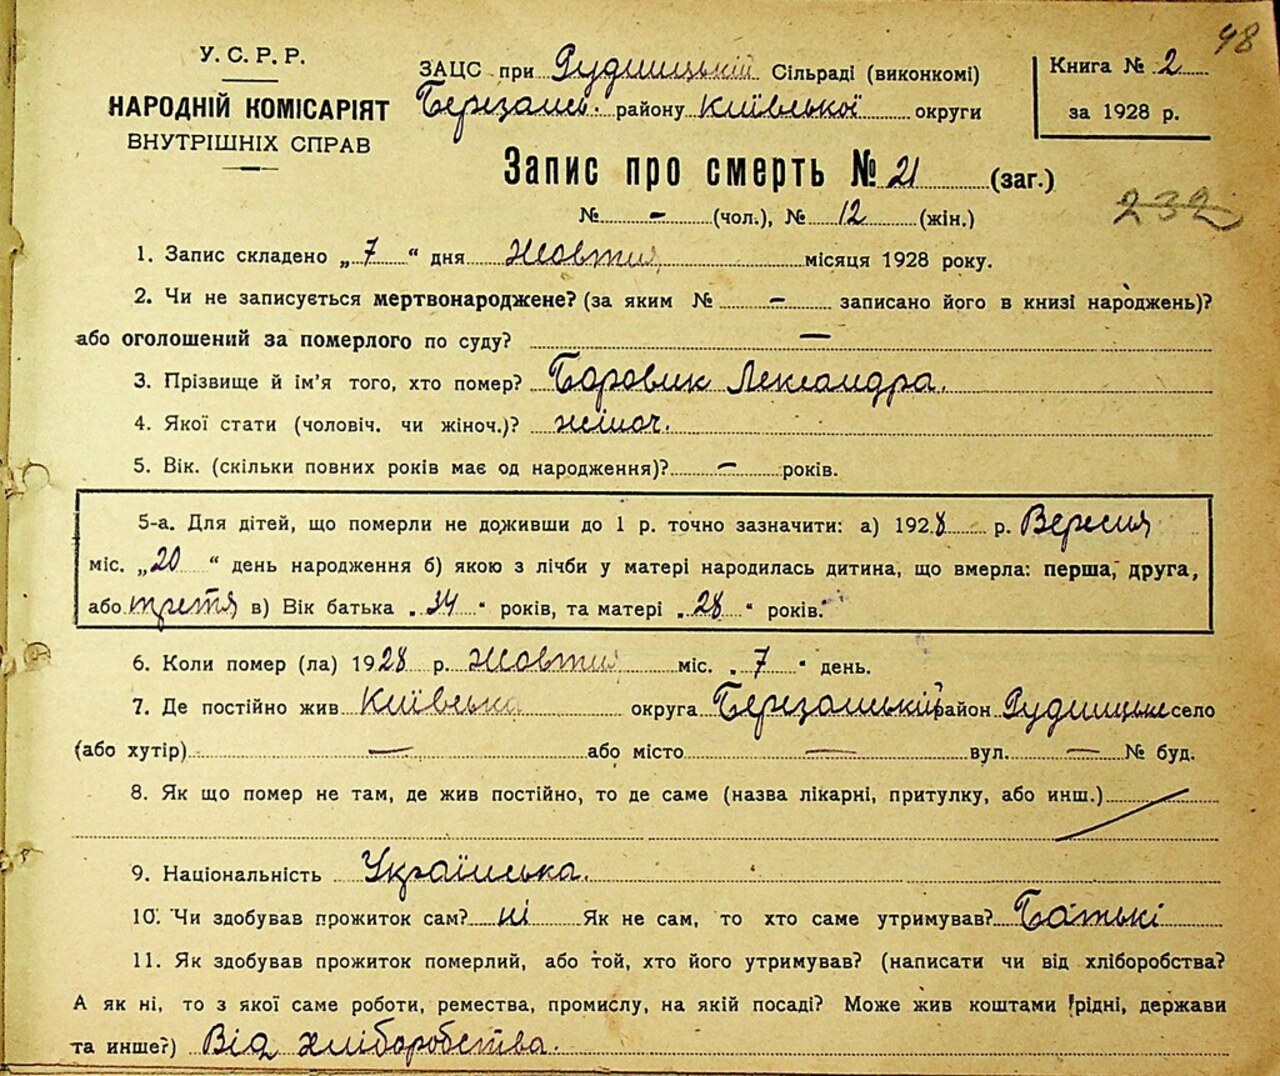 48
У. С. Р. Р.
НАРОДНІЙ КОМІСАРІЯТ
ВНУТРІШНІХ СПРАВ
ЗАЦС при Рудницькій Сільраді (виконкомі)
Березансь. району Київської округи
Книга № 2
за 1928 р.
Запис про смерть № 21 (заг.)
№ - (чол.), № 12 (жін.)
232
1. Запис складено „7“ дня Жовтня місяця 1928 року.
2. Чи не записується мертвонароджене? (за яким № - записано його в книзі народжень)?
або оголошений за померлого по суду? —
3. Прізвище й ім'я того, хто помер? Боровик Лександра.
4. Якої стати (чоловіч. чи жіноч.)? жіноч.
5. Вік. (скільки повних років має од народження)? - років.
5-а. Для дітей, що померли не доживши до 1 р. точно зазначити: а) 1928 р. Вересня
міс. „20“ день народження б) якою з лічби у матері народилась дитина, що вмерла: перша, друга,
або третя в) Вік батька „34“ років, та матері „28“ років.
6. Коли помер (ла) 1928 р. Жовтня міс. „7“ день.
7. Де постійно жив Київська округа Березанський район Рудницьке село
(або хутір) — або місто — вул. — № буд.
8. Як що помер не там, де жив постійно, то де саме (назва лікарні, притулку, або инш.)
9. Національність Українська.
10. Чи здобував прожиток сам? ні Як не сам, то хто саме утримував? Батькі
11. Як здобував прожиток померлий, або той, хто його утримував? (написати чи від хліборобства?
А як ні, то з якої саме роботи, ремества, промислу, на якій посаді? Може жив коштами рідні, держави
та инше?) Від хліборобства.